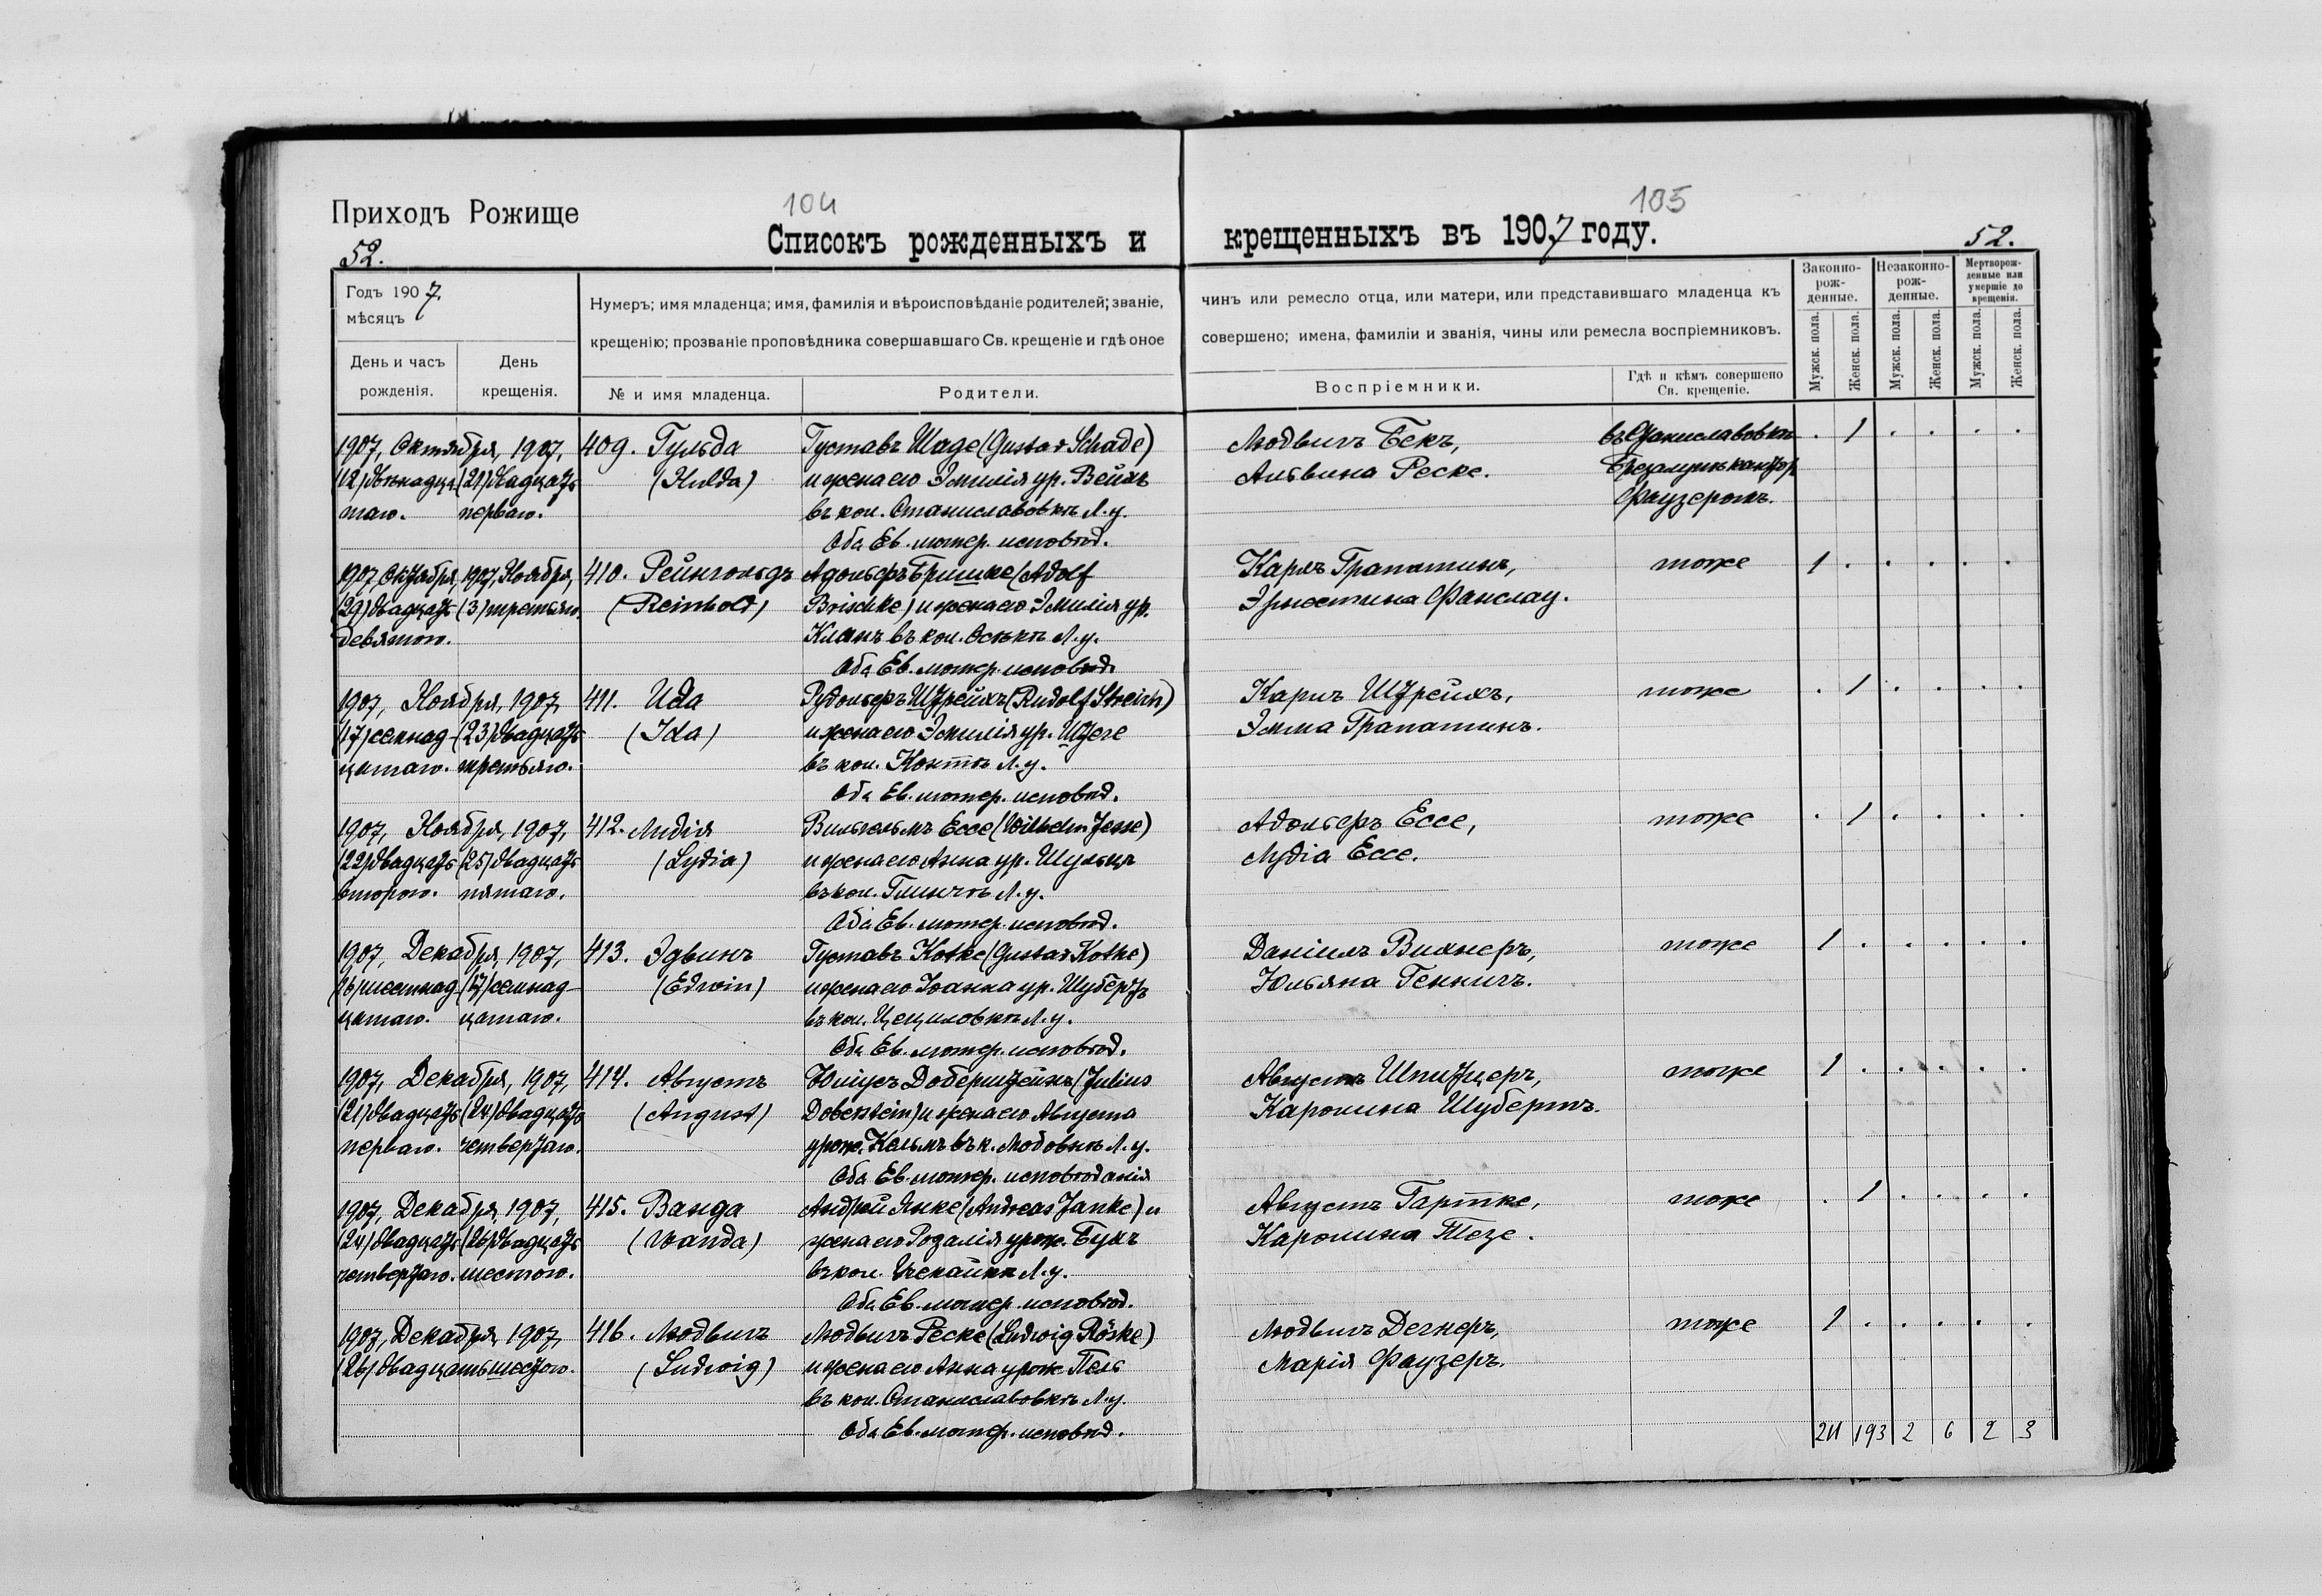 Приходъ Рожище
104
105
52.
Списокъ рожденныхъ и крещенныхъ въ 1907 году.
52.
Годъ 1907.
мѣсяцъ
День и часъ рожденія.
День крещенія.
Нумеръ; имя младенца; имя, фамилія и вѣроисповѣданіе родителей; званіе,
крещенію; прозваніе проповѣдника совершавшаго Св. крещеніе и гдѣ оное
№ и имя младенца.
Родители.
чинъ или ремесло отца, или матери, или представившаго младенца къ
совершено; имена, фамиліи и званія, чины или ремесла воспріемниковъ.
Воспріемники.
Гдѣ и кѣмъ совершено
Св. крещеніе.
Законно-
рож-
денные.
Незаконно-
рож-
денные.
Мертворож-
денные или
умершіе до
крещенія.
Мужск. пола.
Женск. пола.
Мужск. пола.
Женск. пола.
Мужск. пола.
Женск. пола.
1907, Октября, 1907, 409. Гульда Густавъ Шаде (Gustav Schade) Людвигъ Бекъ, въ Станиславовкѣ . 1 . . . .
(12) двѣнадца- (21) двадцать (Hulda) и жена его Эмилія ур. Вейхъ Альвина Реске. кантор.
таго. перваго. въ кол. Станиславовкѣ Л. у. Фаузеромъ.
Оба Ев. лютер. исповѣд.
1907 Октября, 1907, Ноября, 410. Рейнгольдъ Адольфъ Бришке (Adolf Карлъ Грапатинъ, тоже 1 . . . . .
(29) двадцать (3) третьяго. (Reinhold) Brischke) и жена его Эмилія ур. Эрнестина Фанслау.
девятого. въ кол. Осѣкъ Л. у.
Оба Ев. лютер. исповѣд.
1907, Ноября, 1907, 411. Ида Рудольфъ Штрейхъ (Rudolf Streich) Карлъ Штрейхъ, тоже . 1 . . . .
(17) семнад- (23) двадцать (Ida) и жена его Эмилія ур. Штеге Эмма Грапатинъ.
цатаго. третьяго. въ кол. Л. у.
Оба Ев. лютер. исповѣд.
1907, Ноября, 1907, 412. Лидія Вильгельмъ Ессе (Wilhelm Jesse) Адольфъ Ессе, тоже . 1 . . . .
(22) двадцать (25) двадцать (Lydia) и жена его Анна ур. Шульцъ Лидіа Ессе.
второго. пятаго. въ кол. Л. у.
Оба Ев. лютер. исповѣд.
1907, Декабря, 1907, 413. Эдвинъ Густавъ Котке (Gustav Kothe) Даніилъ Вихнеръ, тоже 1 . . . . .
(16) шестнад- (17) семнад- (Edwin) и жена его Іоанна ур. Шубертъ Юльяна Геннигъ.
цатаго. цатаго. въ кол. Цециловкѣ Л. у.
Оба Ев. лютер. исповѣд.
1907, Декабря, 1907, 414. Августъ Юліусъ Доберштейнъ (Julius Августъ Шпитцеръ, тоже 1 . . . . .
(21) двадцать (24) двадцать (August) Doberstein) и жена его Августа Каролина Шубертъ.
перваго. четвертаго. урож. Кельмъ въ к. Любовкѣ Л. у.
Оба Ев. лютер. исповѣданія
1907, Декабря, 1907, 415. Ванда Андрей Янке (Andreas Janke) и Августъ Гартке, тоже . 1 . . . .
(24) двадцать (26) двадцать (Wanda) жена его Розалія урож. Букъ Каролина Тезе.
четвертаго. шестого. въ кол. Л. у.
Оба Ев. лютер. исповѣд.
1907, Декабря, 1907, 416. Людвигъ Людвигъ Реске (Ludwig Röske) Людвигъ Дегнеръ, тоже 1 . . . . .
(26) двадцать шестого. (Ludwig) и жена его Анна урож. Пель Марія Фаузеръ.
въ кол. Станиславовкѣ Л. у.
Оба Ев. лютер. исповѣд.
211 193 2 6 2 3